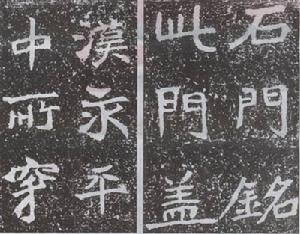 石門銘
此門盖
漢永平
中所穿